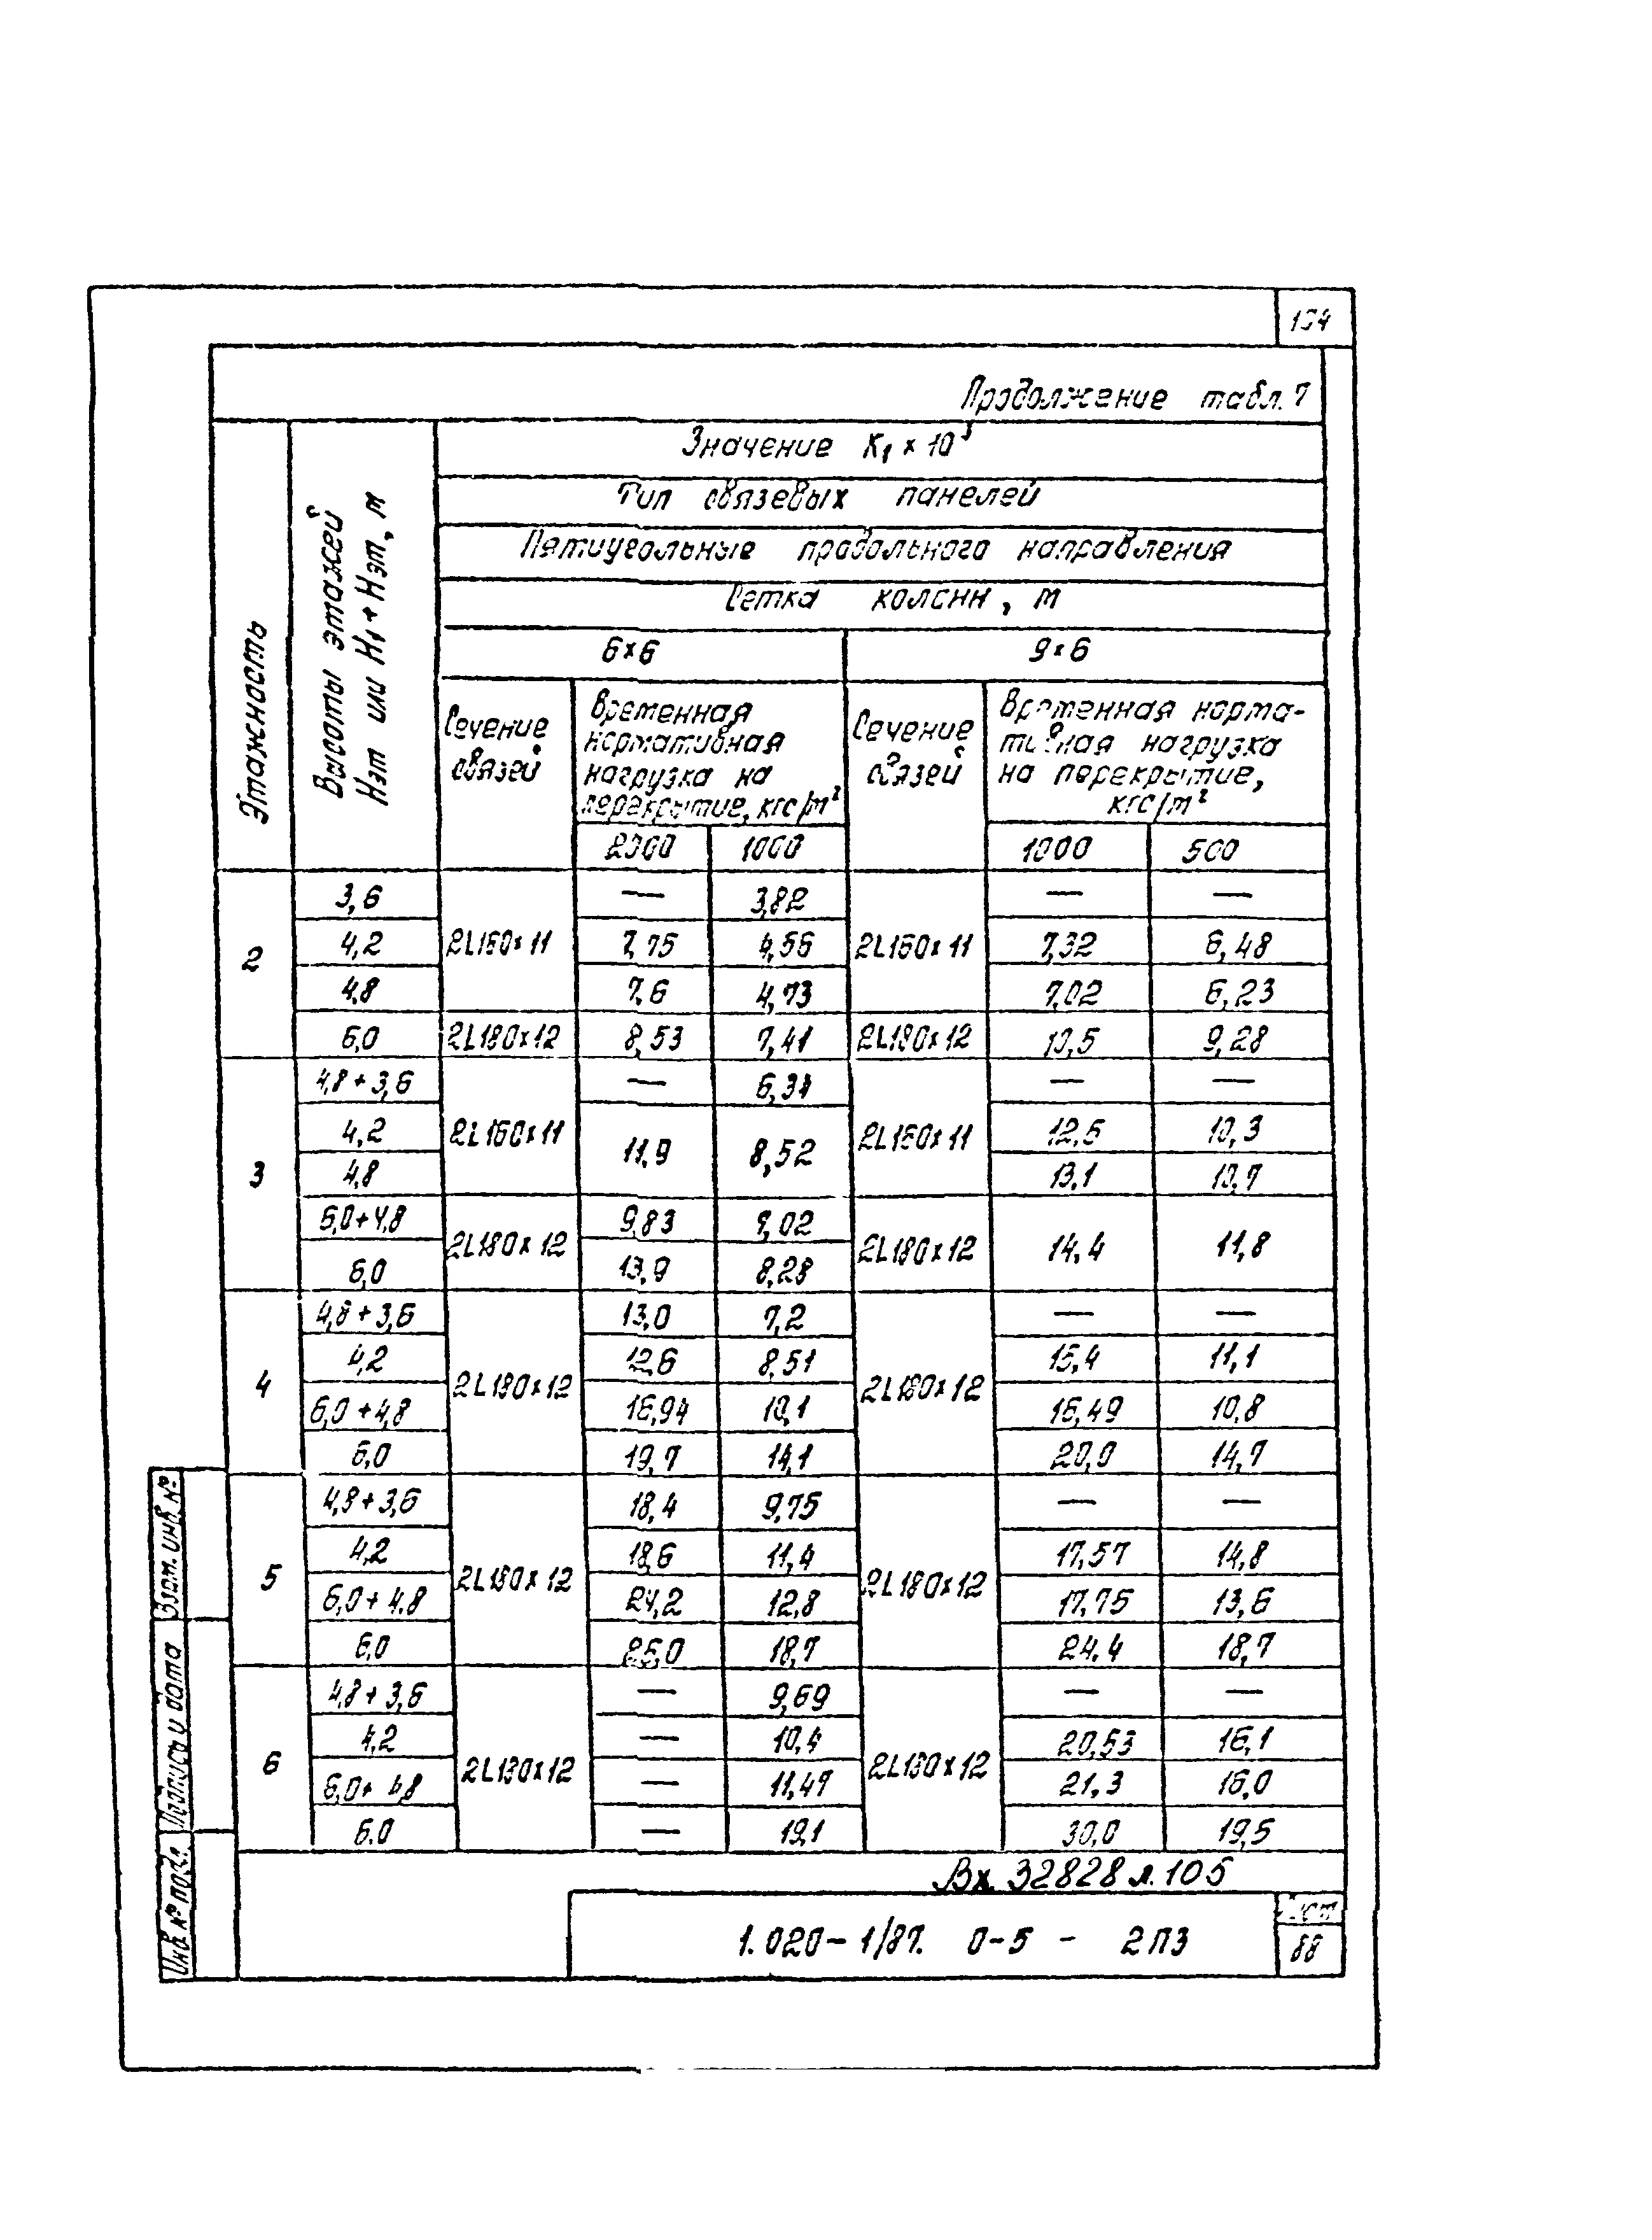 Продолжение табл. 7
Значение K₁ × 10³
Тип связевых панелей
Пятиугольные продольного направления
Сетка колонн, м
Этажность
Высоты этажей
Нэт или Н₁ + Нэт, м
6×6
9×6
Сечение
связей
Временная
нормативная
нагрузка на
перекрытие, кгс/м²
Сечение
связей
Временная норма-
тивная нагрузка
на перекрытие,
кгс/м²
2000 1000 1000 500
2
3,6 2L160×11 — 3,82 2L160×11 — —
4,2 7,75 4,56 7,32 6,48
4,8 7,6 4,73 7,02 6,23
6,0 2L180×12 8,53 7,41 2L180×12 10,5 9,28
3
4,8+3,6 2L160×11 — 2L160×11 — —
4,2 11,9 8,52 10,3
4,8 13,1 10,7
6,0+4,8 2L180×12 9,83 2L180×12 14,4 11,8
6,0 13,9 8,28
4
4,8+3,6 2L180×12 13,0 7,2 2L180×12 — —
4,2 12,6 8,51 15,4 11,1
6,0+4,8 16,94 10,1 16,49 10,8
6,0 19,7 14,1 20,0 14,7
5
4,8+3,6 2L180×12 18,4 9,75 2L180×12 — —
4,2 18,6 11,4 17,57 14,8
6,0+4,8 24,2 12,8 17,75 13,6
6,0 18,7 24,4 18,7
6
4,8+3,6 2L180×12 — 9,69 2L180×12 — —
4,2 — 10,4 20,53 16,1
6,0+4,8 — 11,47 21,3 16,0
6,0 — 19,1 30,0 19,5
Вх. 32828 л. 105
1.020-1/87. 0-5 - 2ПЗ
Лист
88
Взам. инв. №
Подпись и дата
Инв. № подл.